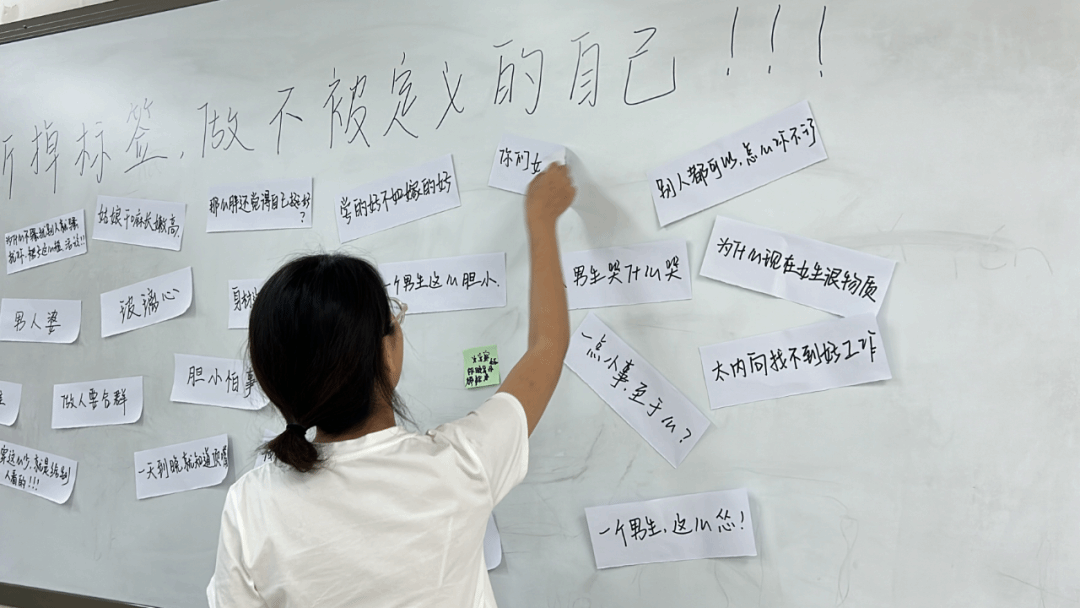 掉标签,做不被定义的自己!!!
你们女
别人都可以,怎么你不行
学的好不如嫁的好
那么胖还觉得自己挺好
?
姑娘干嘛长嫩高
为什么现在女生很物质
一个男生这么胆小.
男生哭什么哭
玻璃心
男人婆
太内向找不到好工作
一点小事,至于么?
胆小怕事
做人要合群
一天到晚就知道
穿这么少,就是给别
人看的!!!
一个男生,这么怂!